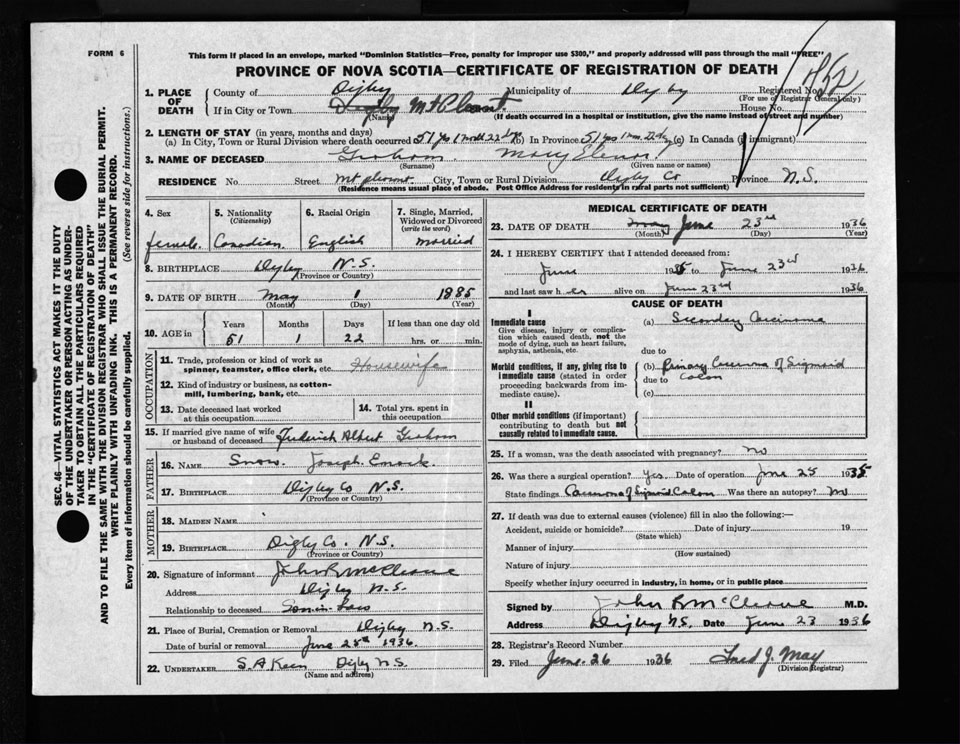 FORM 6
This form if placed in an envelope, marked "Dominion Statistics—Free, penalty for improper use $300," and properly addressed will pass through the mail "FREE"
PROVINCE OF NOVA SCOTIA—CERTIFICATE OF REGISTRATION OF DEATH
1. PLACE OF DEATH
County of Digby Municipality of Digby Registered No.
(For use of Registrar General only)
If in City or Town Digby Mt Pleasant House No.
(Name) (If death occurred in a hospital or institution, give the name instead of street and number)
2. LENGTH OF STAY (in years, months and days)
(a) In City, Town or Rural Division where death occurred 51 yrs 1 month 22 dys (b) In Province 51 yrs 1 mo. 22 dys (c) In Canada (if immigrant)
3. NAME OF DECEASED Graham Mary Elenor
(Surname) (Given name or names)
RESIDENCE No. Street Mt pleasant City, Town or Rural Division Digby Co Province N.S.
(Residence means usual place of abode. Post Office Address for residents in rural parts not sufficient)
4. Sex 5. Nationality (Citizenship) 6. Racial Origin 7. Single, Married, Widowed or Divorced (write the word)
female. Canadian English married
8. BIRTHPLACE Digby N.S.
(Province or Country)
9. DATE OF BIRTH May 1 1885
(Month) (Day) (Year)
10. AGE in Years Months Days If less than one day old
51 1 22 hrs. or min.
OCCUPATION
11. Trade, profession or kind of work as spinner, teamster, office clerk, etc. Housewife
12. Kind of industry or business, as cotton-mill, lumbering, bank, etc.
13. Date deceased last worked at this occupation 14. Total yrs. spent in this occupation
15. If married give name of wife or husband of deceased Frederick Albert Graham
FATHER
16. NAME Snow. Joseph
17. BIRTHPLACE Digby Co N.S.
(Province or Country)
MOTHER
18. MAIDEN NAME
19. BIRTHPLACE Digby Co. N.S.
(Province or Country)
20. Signature of informant John R McCleave
Address Digby N.S.
Relationship to deceased Son in law
21. Place of Burial, Cremation or Removal Digby N.S.
Date of burial or removal June 25th 1936.
22. UNDERTAKER S. A Keen Digby N.S.
(Name and address)
MEDICAL CERTIFICATE OF DEATH
23. DATE OF DEATH May June 23rd 1936
(Month) (Day) (Year)
24. I HEREBY CERTIFY that I attended deceased from:
June 1935 to June 23rd 1936
and last saw her alive on June 23rd 1936
CAUSE OF DEATH
I
Immediate cause
Give disease, injury or complication which caused death, not the mode of dying, such as heart failure, asphyxia, asthenia, etc.
(a) Secondary Carcinoma
due to
Morbid conditions, if any, giving rise to immediate cause (stated in order proceeding backwards from immediate cause).
(b) Primary Carcinoma of Sigmoid
due to Colon
(c)
II
Other morbid conditions (if important) contributing to death but not causally related to immediate cause.
25. If a woman, was the death associated with pregnancy? no
26. Was there a surgical operation? Yes. Date of operation June 25 1935
State findings Carcinoma of Sigmoid Colon Was there an autopsy? No
27. If death was due to external causes (violence) fill in also the following:—
Accident, suicide or homicide? Date of injury 19
(State which)
Manner of injury
(How sustained)
Nature of injury
Specify whether injury occurred in industry, in home, or in public place
Signed by John R McCleave M.D.
Address Digby N.S. Date June 23 1936
28. Registrar's Record Number
29. Filed June 26 1936 Fred J. May
(Division Registrar)
SEC. 46—VITAL STATISTICS ACT MAKES IT THE DUTY
OF THE UNDERTAKER OR PERSON ACTING AS UNDER-
TAKER TO OBTAIN ALL THE PARTICULARS REQUIRED
IN THE "CERTIFICATE OF REGISTRATION OF DEATH"
AND TO FILE THE SAME WITH THE DIVISION REGISTRAR WHO SHALL ISSUE THE BURIAL PERMIT.
WRITE PLAINLY WITH UNFADING INK. THIS IS A PERMANENT RECORD.
Every item of information should be carefully supplied. (See reverse side for instructions.)